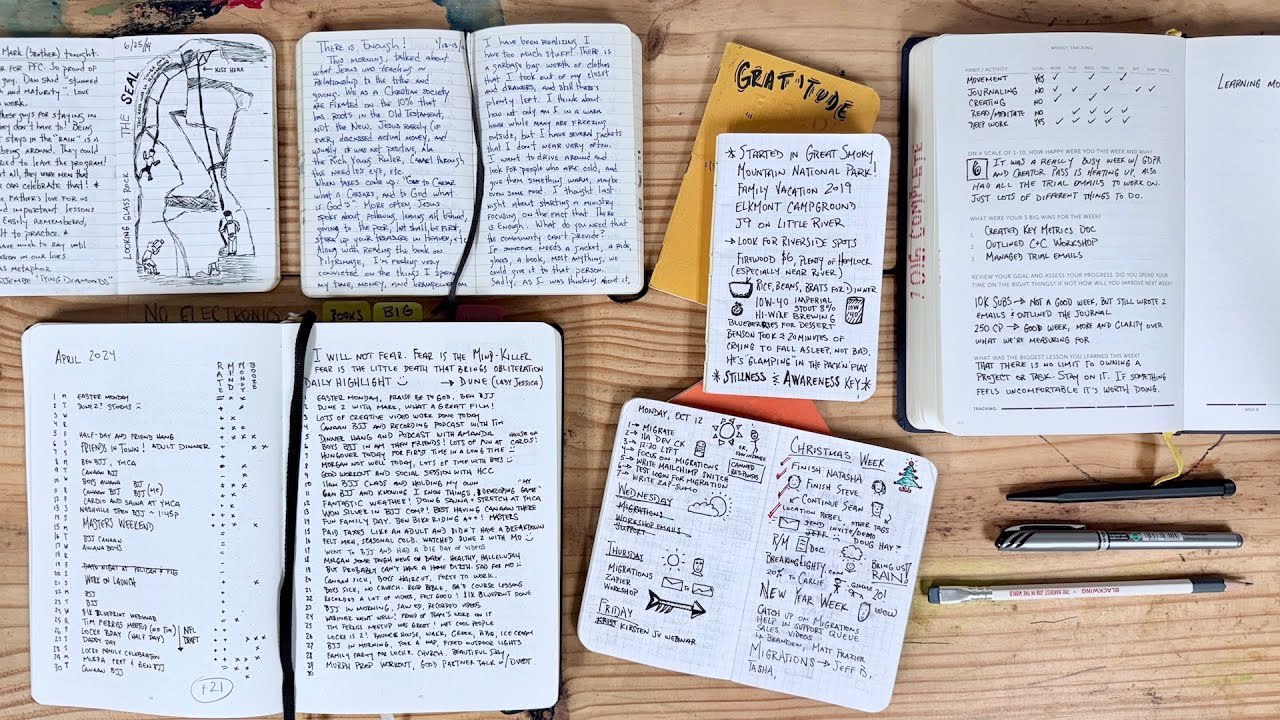 MARK (BROTHER) TAUGHT.
FOR PFC. SO PROUD OF
GUY. DAN SAID "STUNNED
AND MATURITY". LOVE
WORK.
THESE GUYS FOR STAYING IN
THEY DON'T HAVE TO! BEING
STAYS IN THE "RAIN" IS
BEING AROUND. THEY COULD
TO LEAVE THE PROGRAM!
ALL, THEY WERE MEN THAT
CAN CELEBRATE THAT! *
FATHER'S LOVE FOR US
AND IMPORTANT LESSONS
EASILY REMEMBERED,
IT TO PRACTICE. *
HAVE MUCH TO SAY UNTIL
IN OUR LIVES
AS METAPHOR
6/25/19
THE SEAL
KISS HERE
LOOKING GLASS ROCK
THERE IS ENOUGH!
THIS MORNING, TALKED ABOUT
WHAT JESUS WAS TEACHING IN
RELATIONSHIP TO THE TITHE AND
GIVING. WE AS A CHRISTIAN SOCIETY
ARE FIXATED ON THE 10% THAT
HAS ROOTS IN THE OLD TESTAMENT,
NOT THE NEW. JESUS RARELY (IF
EVER) DISCUSSED ACTUAL MONEY, AND
USUALLY IT WAS NOT POSITIVE, ALA
THE RICH YOUNG RULER, CAMEL THROUGH
THE NEEDLE'S EYE, ETC.
WHEN TAXES COME UP, "GIVE TO CAESAR
WHAT IS CAESAR'S, AND TO GOD WHAT
IS GOD'S". MORE OFTEN, JESUS
SPOKE ABOUT FOLLOWING, LEAVING ALL BEHIND,
GIVING TO THE POOR, LAST SHALL BE FIRST,
STORE UP YOUR TREASURE IN HEAVEN, ETC.
WITH READING THIS BOOK ON
PILGRIMAGE, I'M FEELING VERY
CONVICTED ON THE THINGS I SPEND
MY TIME, MONEY, AND BRAINPOWER ON
I HAVE BEEN REALIZING I
HAVE TOO MUCH STUFF! THERE IS
A GARBAGE BAG WORTH OF CLOTHES
THAT I TOOK OUT OF MY CLOSET
AND DRAWERS, AND STILL THERE'S
PLENTY LEFT. I THINK ABOUT
HOW NOT ONLY AM I IN A WARM
HOUSE WHILE MANY ARE FREEZING
OUTSIDE, BUT I HAVE SEVERAL JACKETS
THAT I DON'T WEAR VERY OFTEN.
I WANT TO DRIVE AROUND AND
LOOK FOR PEOPLE WHO ARE COLD, AND
GIVE THEM SOMETHING WARM, MAYBE
EVEN SOME FOOD. I THOUGHT LAST
NIGHT ABOUT STARTING A MINISTRY
FOCUSING ON THE FACT THAT THERE
IS ENOUGH. WHAT DO YOU NEED THAT
THE COMMUNITY CAN'T PROVIDE?
IF SOMEONE NEEDS A JACKET, A RIDE,
GLOVES, A BOOK, MOST ANYTHING, WE
COULD GIVE IT TO THAT PERSON.
SADLY, AS I WAS THINKING ABOUT IT,
GRATITUDE
* STARTED IN GREAT SMOKY
MOUNTAIN NATIONAL PARK!
FAMILY VACATION 2019
ELKMONT CAMPGROUND
J9 ON LITTLE RIVER
→ LOOK FOR RIVERSIDE SPOTS
FIREWOOD $6, PLENTY OF HEMLOCK
(ESPECIALLY NEAR RIVER)
RICE, BEANS, BRATS FOR DINNER
10W-40 IMPERIAL
STOUT 8%
HI-WIRE BREWING
BLUEBERRIES FOR DESSERT
BENSON TOOK 20 MINUTES OF
CRYING TO FALL ASLEEP, NOT BAD.
HE'S "GLAMPING" IN THE PACK'N PLAY
* STILLNESS & AWARENESS KEY *
WEEKLY TRACKING
HABIT/ACTIVITY GOAL MON TUE WED THU FRI SAT SUN TOTAL
MOVEMENT YES ✓ ✓
JOURNALING NO ✓ ✓ ✓ ✓
CREATING NO ✓
READ/MEDITATE NO ✓ ✓ ✓
DEEP WORK YES ✓ ✓ ✓
ON A SCALE OF 1-10, HOW HAPPY WERE YOU THIS WEEK AND WHY?
6 IT WAS A REALLY BUSY WEEK W/ GDPR
AND CREATOR PASS IS HEATING UP. ALSO
HAD ALL THE TRIAL EMAILS TO WORK ON.
JUST LOTS OF DIFFERENT THINGS TO DO.
WHAT WERE YOUR 3 BIG WINS FOR THE WEEK?
1 CREATED KEY METRICS DOC
2 OUTLINED C+C WORKSHOP
3 MANAGED TRIAL EMAILS
REVIEW YOUR GOAL AND ASSESS YOUR PROGRESS. DID YOU SPEND
YOUR TIME ON THE RIGHT THINGS? IF NOT HOW WILL YOU IMPROVE NEXT WEEK?
10K SUBS → NOT A GOOD WEEK, BUT STILL WROTE 2
EMAILS & OUTLINED THE JOURNAL
250 CP → GOOD WEEK, MORE AND CLARITY OVER
WHAT WE'RE MEASURING FOR
WHAT WAS THE BIGGEST LESSON YOU LEARNED THIS WEEK?
THAT THERE IS NO LIMIT TO OWNING A
PROJECT OR TASK. STAY ON IT. IF SOMETHING
FEELS UNCOMFORTABLE IT'S WORTH DOING.
TRACKING:
WEEK 8
LEARNING
NO ELECTRONICS
BOOKS
BIG
APRIL 2024
RATE
MIND
MONEY
BODY
1 M EASTER MONDAY
2 T DUNE 2! STORMS
HALF-DAY AND FRIEND HANG
FRIENDS IN TOWN! ADULT DINNER
BEN BJJ, YMCA
CANAAN BJJ
BOYS AWANA BJJ
CANAAN BJJ BJJ (ME)
CARDIO AND SAUNA AT YMCA
NASHVILLE OPEN BJJ ~ 1:45P
MASTERS WEEKEND
BJJ CANAAN
AWANA BOYS
WORK ON LAUNCH
BJJ
BJJ
$1K BLUEPRINT WEBINAR
TIM FERRISS MEETUP (NO TIM)
LOCKE BDAY (HALF DAY)
NFL DRAFT
DADDY DAY
LOCKE FAMILY CELEBRATION
MURPH PREP & BEN BJJ
CANAAN BJJ
+21
I WILL NOT FEAR. FEAR IS THE MIND-KILLER
FEAR IS THE LITTLE DEATH THAT BRINGS OBLITERATION
DAILY HIGHLIGHT → DUNE (LADY JESSICA)
1 EASTER MONDAY, PRAISE BE TO GOD. BEN BJJ
2 DUNE 2 WITH MARK, WHAT A GREAT FILM!
3 LOTS OF CREATIVE VIDEO WORK DONE TODAY
4 CANAAN BJJ AND RECORDING PODCAST WITH TIM
5 DINNER HANG AND PODCAST WITH AMANDA
6 BOYS BJJ IN AM THEN FRIENDS! LOTS OF FUN AT HOUSE OF CARDS!
7 HUNGOVER TODAY FOR FIRST TIME IN A LONG TIME
8 MORGAN NOT WELL TODAY, LOTS OF TIME WITH BOYS
9 GOOD WORKOUT AND SOCIAL SESSION WITH HCC
10 11AM BJJ CLASS AND HOLDING MY OWN
11 6AM BJJ AND KNOWING I KNOW THINGS, DEVELOPING "MY GAME"
12 FANTASTIC WEATHER! DOING SAUNA + STRETCH AT YMCA
13 WON SILVER IN BJJ COMP! BEST HAVING CANAAN THERE
14 FUN FAMILY DAY. BEN BIKE RIDING A++! MASTERS
15 PAID TAXES LIKE AN ADULT AND DIDN'T HAVE A BREAKDOWN
16 FELT MEH, SEASONAL COLD. WATCHED DUNE 2 WITH MO
17 WENT TO BJJ AND HAD A BIG DAY OF VIDEOS
18 MORGAN SOME TOUGH NEWS OF BABY. HEALTHY, HALLELUJAH
19 BUT PROBABLY CAN'T HAVE A HOME BIRTH. SAD FOR MO
20 CANAAN SICK, BOYS HAIRCUT, PREP TO WORK.
21 BOYS SICK, NO CHURCH. RED TABLE, COURSE LESSONS
22 RECORDED A LOT OF VIDEOS, FELT GOOD! $1K BLUEPRINT DONE
23 BJJ IN MORNING, SAWED, RECORDED VIDEOS
24 WEBINAR WENT WELL! PROUD OF TEAM'S WORK ON IT
25 TIM FERRISS MEETUP WAS GREAT! MET COOL PEOPLE
26 LOCKE IS 2! BOUNCE HOUSE, WALK, CREEK, BBQ, ICE CREAM
27 BJJ IN MORNING, TOOK A NAP, FIXED OUTDOOR LIGHTS
28 FAMILY PARTY FOR LOCKE. CHURCH. BEAUTIFUL DAY
29 MURPH PREP WORKOUT, GOOD PARTNER TALK W/
30
MONDAY, OCT 12
1→ MIGRATE
2→ 11A DEV CK
3→ 12:30 LIFT
4→ FOCUS ON MIGRATIONS
5→ WRITE MAILCHIMP SWITCH
6→ TEST LOOM FOR MIGRATION
7→ WRITE ZAP-SUMO
CANNED RESPONSES
WEDNESDAY
MIGRATIONS
WORKSHOP EMAILS
SUPPORT
THURSDAY
MIGRATIONS
ZAPIER
WORKSHOP
FRIDAY
KRIST KIRSTEN JV WEBINAR
CHRISTMAS WEEK
FINISH NATASHA
FINISH STEVE
CONTINUE SEAN
LOCATION REBEL
OTHER TASKS
SEND INVITE/DEMO
JEFF
DOUG HAY
R/M DOC
BREAKING EIGHTY
20% TO CARLIE
BRING US RAIN!
GUMMI 20!
NEW YEAR WEEK
WOW
CATCH UP ON MIGRATIONS
HELP IN SUPPORT QUEUE
SALES VIDEOS
↳ BRANDON, MATT FRAZIER
MIGRATIONS → JEFF B,
TASHA,
BLACKWING × THE HARDEST JOB IN THE WORLD